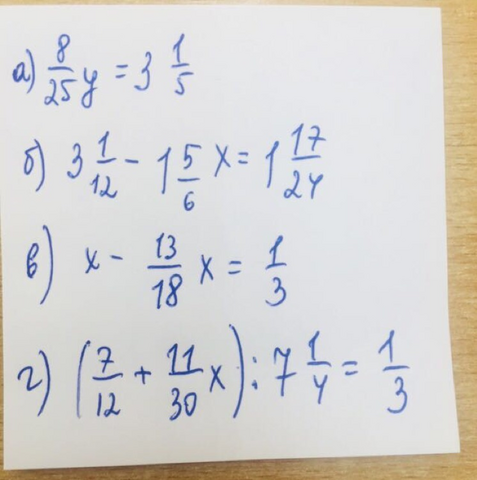 а) 8/25 y = 3 1/5
б) 3 1/12 - 1 5/6 x = 1 17/24
в) x - 13/18 x = 1/3
г) (7/12 + 11/30 x) : 7 1/4 = 1/3